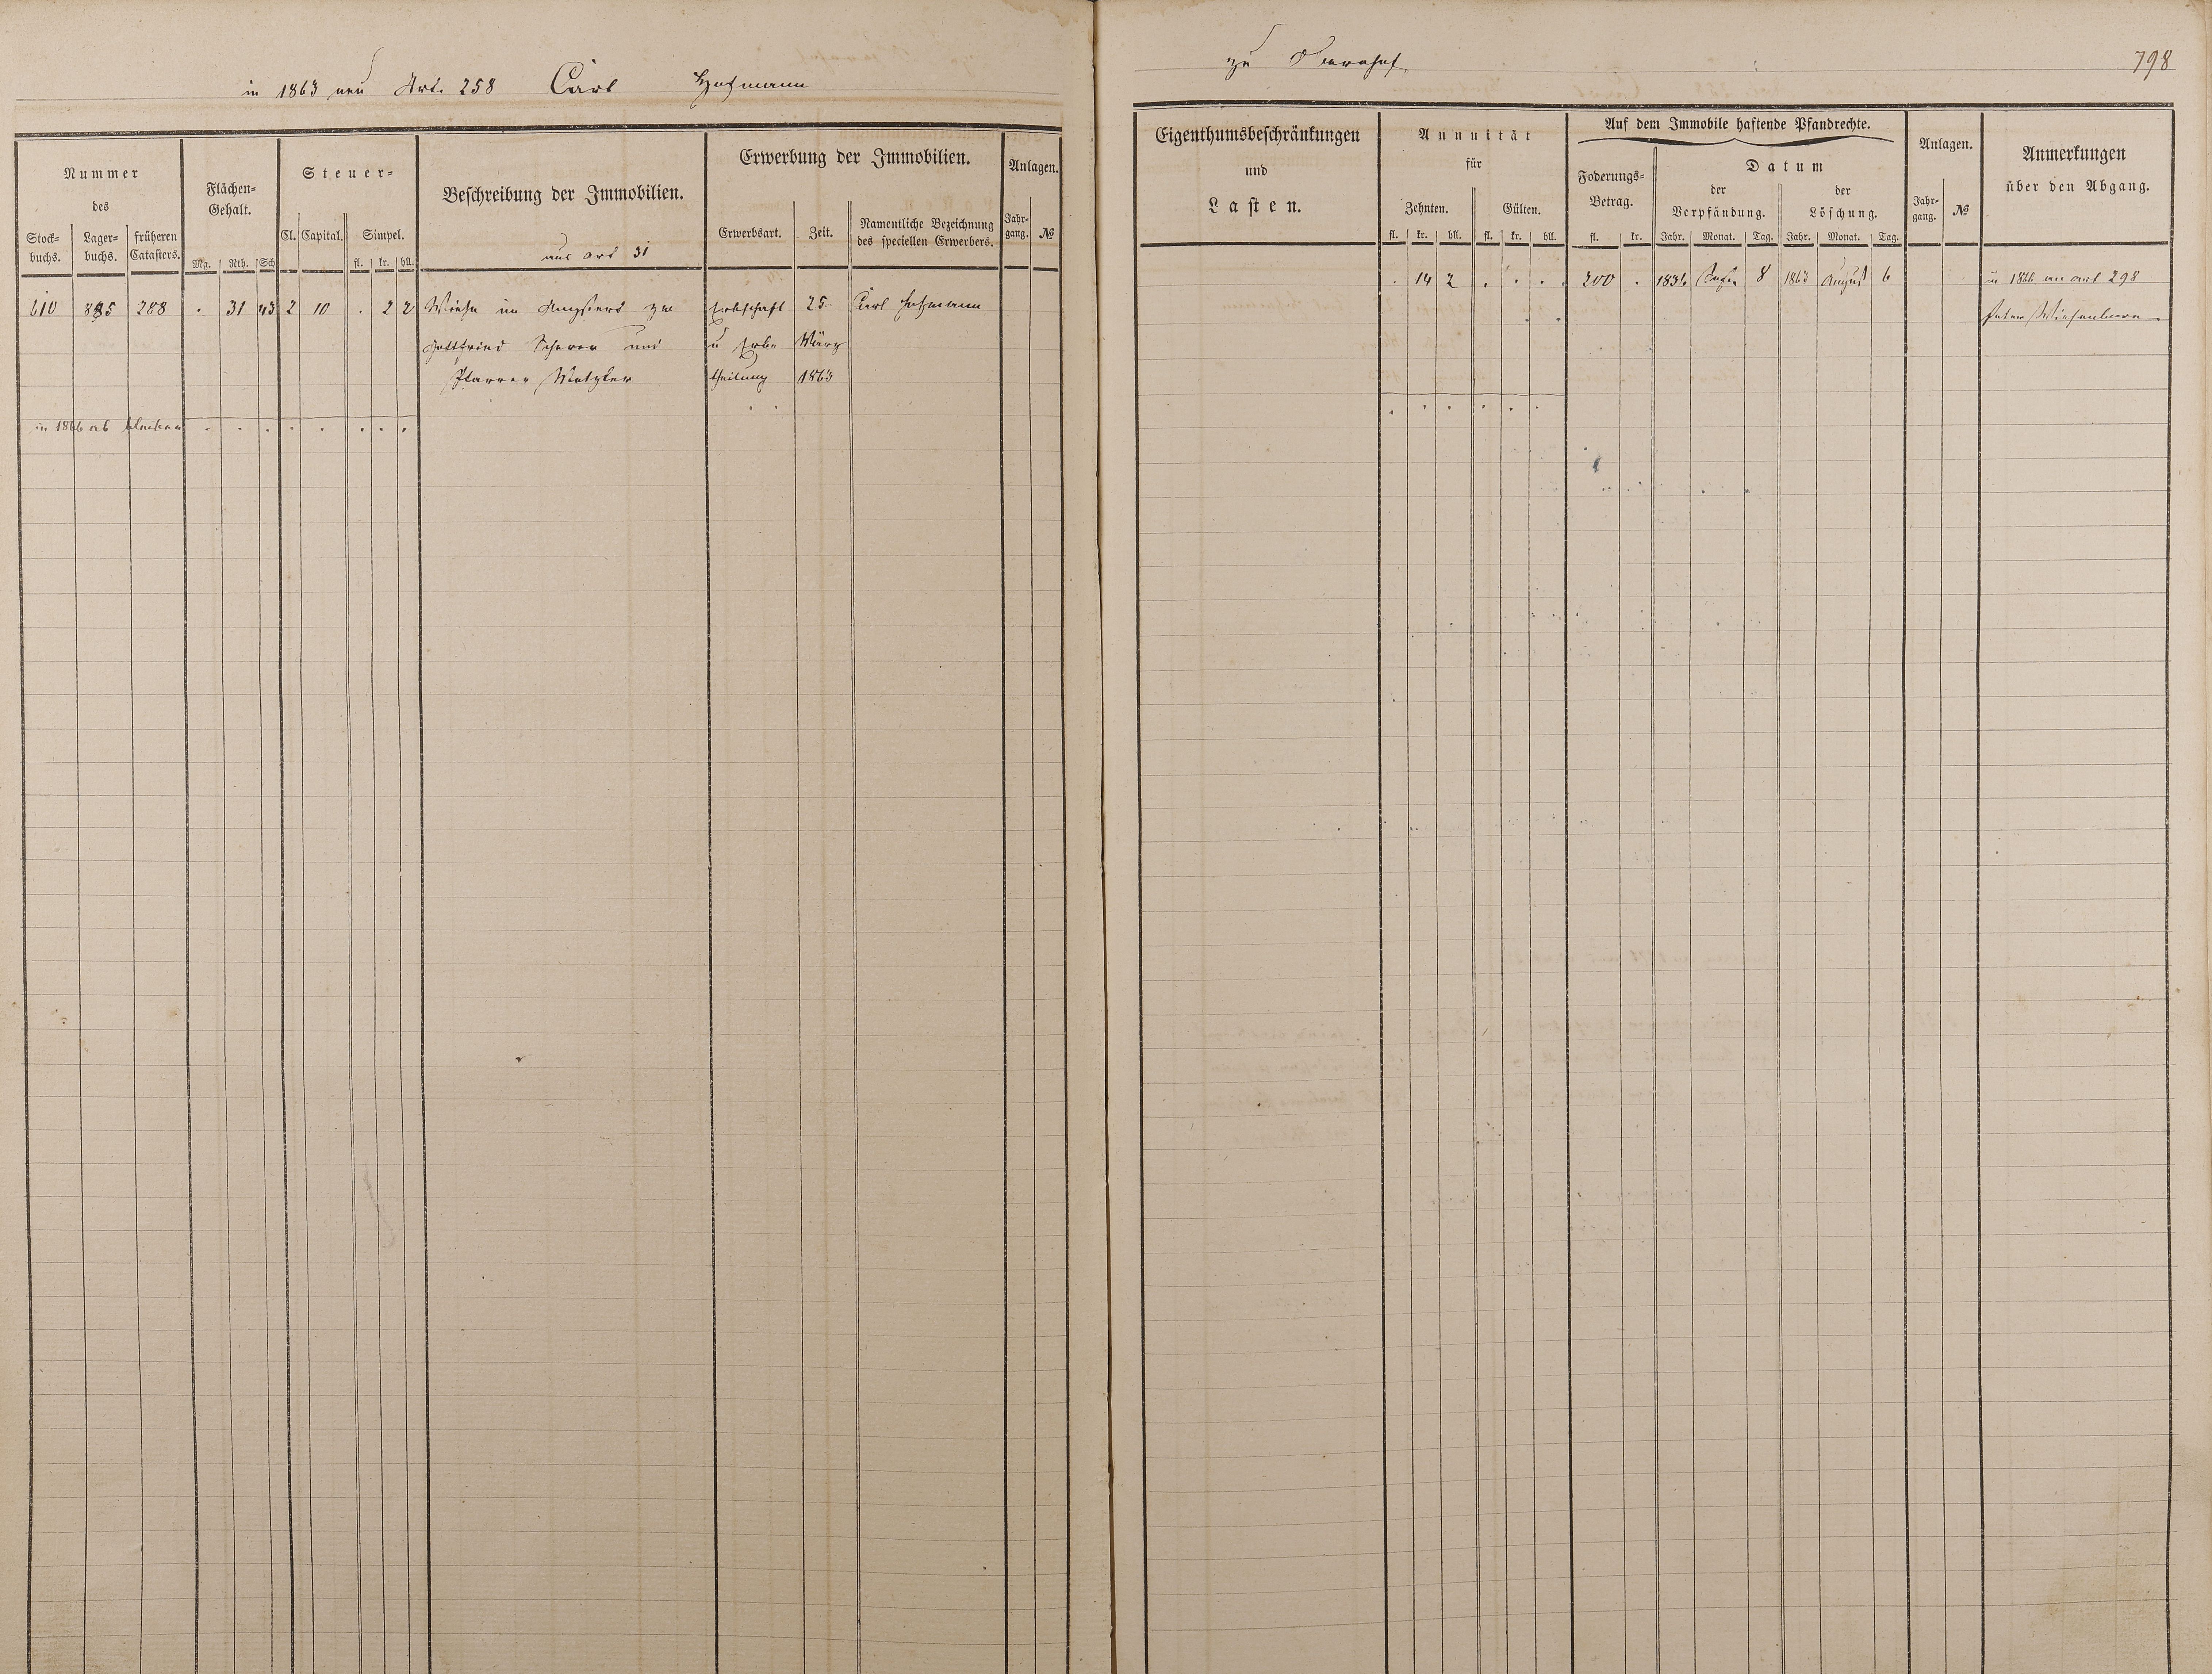 in 1863 neu Art. 258 Carl Hofmann
Nummer
des
Stock-
buchs.
Lager-
buchs.
früheren
Catasters.
Flächen-
Gehalt.
Mg. Rth. Sch
Steuer-
Cl. Capital. Simpel.
fl. kr. hll.
Beschreibung der Immobilien.
aus Art 31
Erwerbung der Immobilien.
Erwerbsart. Zeit.
Namentliche Bezeichnung
des speciellen Erwerbers.
Anlagen.
Jahr-
gang. №
610 885 288 . 31 43 2 10 . 2 2 Wiese im zw Erbschaft 25 Carl Hofmann
Gottfried Scherer und u Erb März
Pfarrer Metzler theilung 1863
in 1866 ab bleiben . . . . . . . .
zu 798
Eigenthumsbeschränkungen
und
Lasten.
Annuität
für
Zehnten. Gülten.
fl. kr. hll. fl. kr. hll.
Auf dem Immobile haftende Pfandrechte.
Foderungs-
Betrag.
fl. kr.
Datum
der
Verpfändung.
Jahr. Monat. Tag.
der
Löschung.
Jahr. Monat. Tag.
Anlagen.
Jahr-
gang. №
Anmerkungen
über den Abgang.
. 14 2 . . . 200 . 1836 8 1863 August 6 in 1866 an Art 298
Peter
. . . . . .